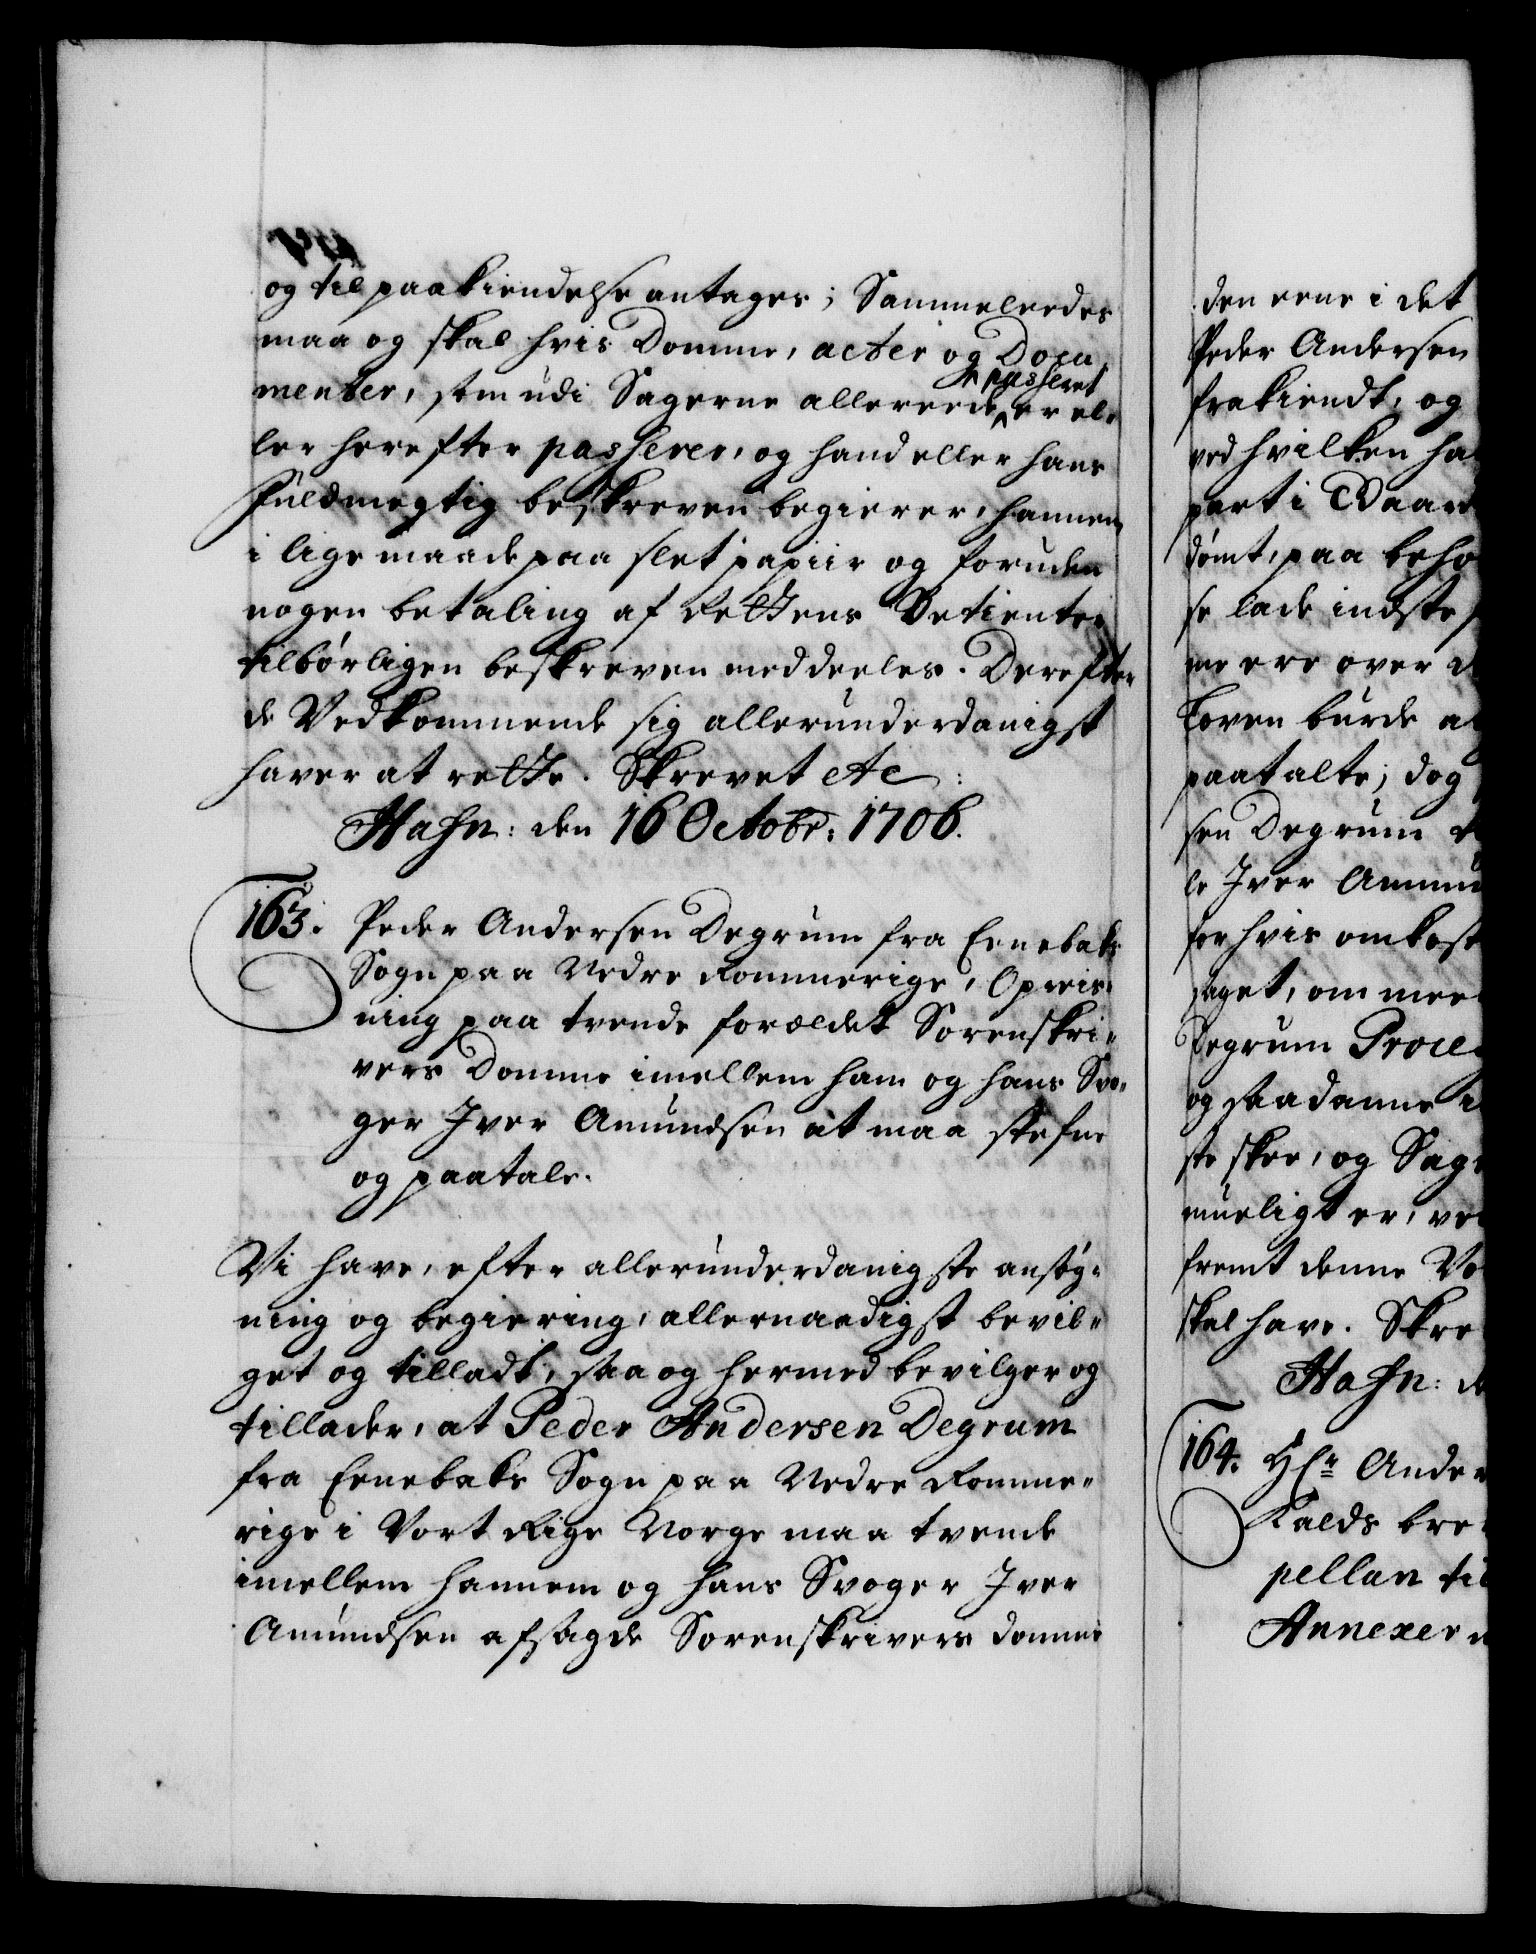 og til paakiendelse antages; Sammeleedes
maa og skal hvis Domme, acter og Docu-
menter, som udi Sagerne allereede er el-
passeret
ler herefter passerer, og hand eller hans
Fuldmegtig beskreven begierer, hannem
i lige maade paa slet papiir og foruden
nogen betaling af Rettens Betiente
tilbørligen beskreven meddeeles. Derefter
de Vedkommende sig allerunderdanigst
haver at rette. Skrevet etc:
Hafn: den 16 Octobr: 1706.
163. Peder Andersen Degrum fra Eenebaks
Sogn paa Nedre Rommerige, Opreis-
ning paa tvende forældet Sorenskri-
vers Domme imellem ham og hans Svo-
ger Iver Amundsen at maa stefne
og paatale.
Vi have, efter allerunderdanigste ansøg-
ning og begiering, allernaadigst bevil-
get og tilladt, saa og hermed bevilger og
tillader, at Peder Andersen Degrum
fra Eenebaks Sogn paa Nedre Romme-
rige i Vort Rige Norge maa tvende
imellem hannem og hans Svoger Iver
Amundsen afsagde Sorenskrivers domme
den eene i det
Peder Andersen
frakiendt, og
ved hvilken ha
part i Waar
dømt, paa beho
se lade indste
me ere over
Loven burde a
paatalte; dog
sen Degrum
le Iver Ammu
for hvis omkost
saget, om mee
Degrum Proce
og saadanne
ste skee, og Sag
mueligt er, ve
fremt denne Vo
skal have. Skre
Hafn: de
164. Hr Ander
Kalds bre
pellan til
Annexer